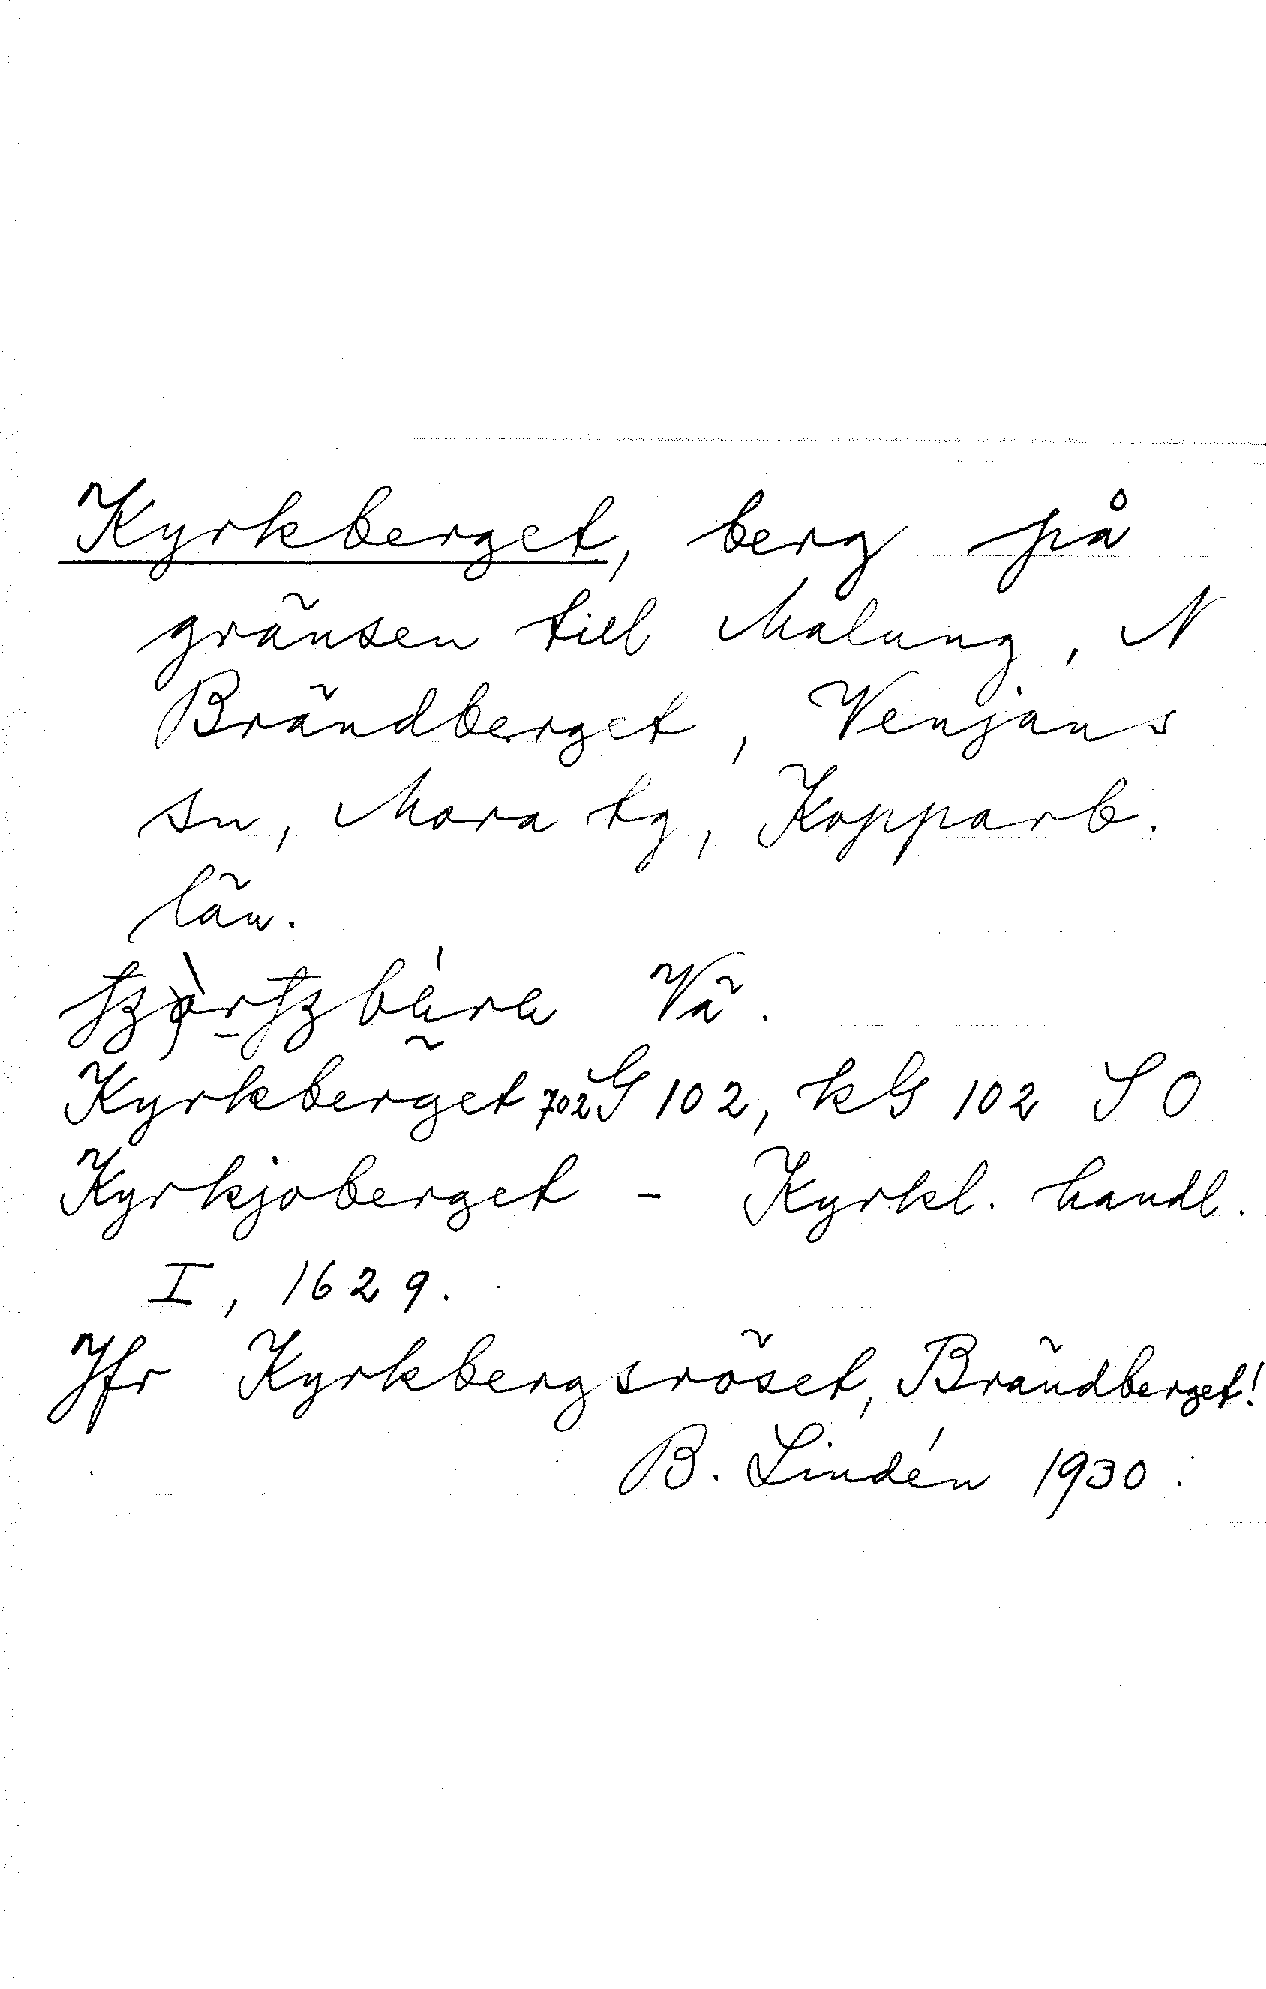 Kyrkberget, berg på
gränsen till Malung, N
Brändberget, Venjans
sn, Mora tg, Kopparb.
län.
Vä.
Kyrkberget 702 G 102, kG 102 SO
Kyrkjoberget - Kyrkl. handl.
I, 1629.
Jfr Kyrkbergsröset, Brändberget!
B. Lindén 1930.